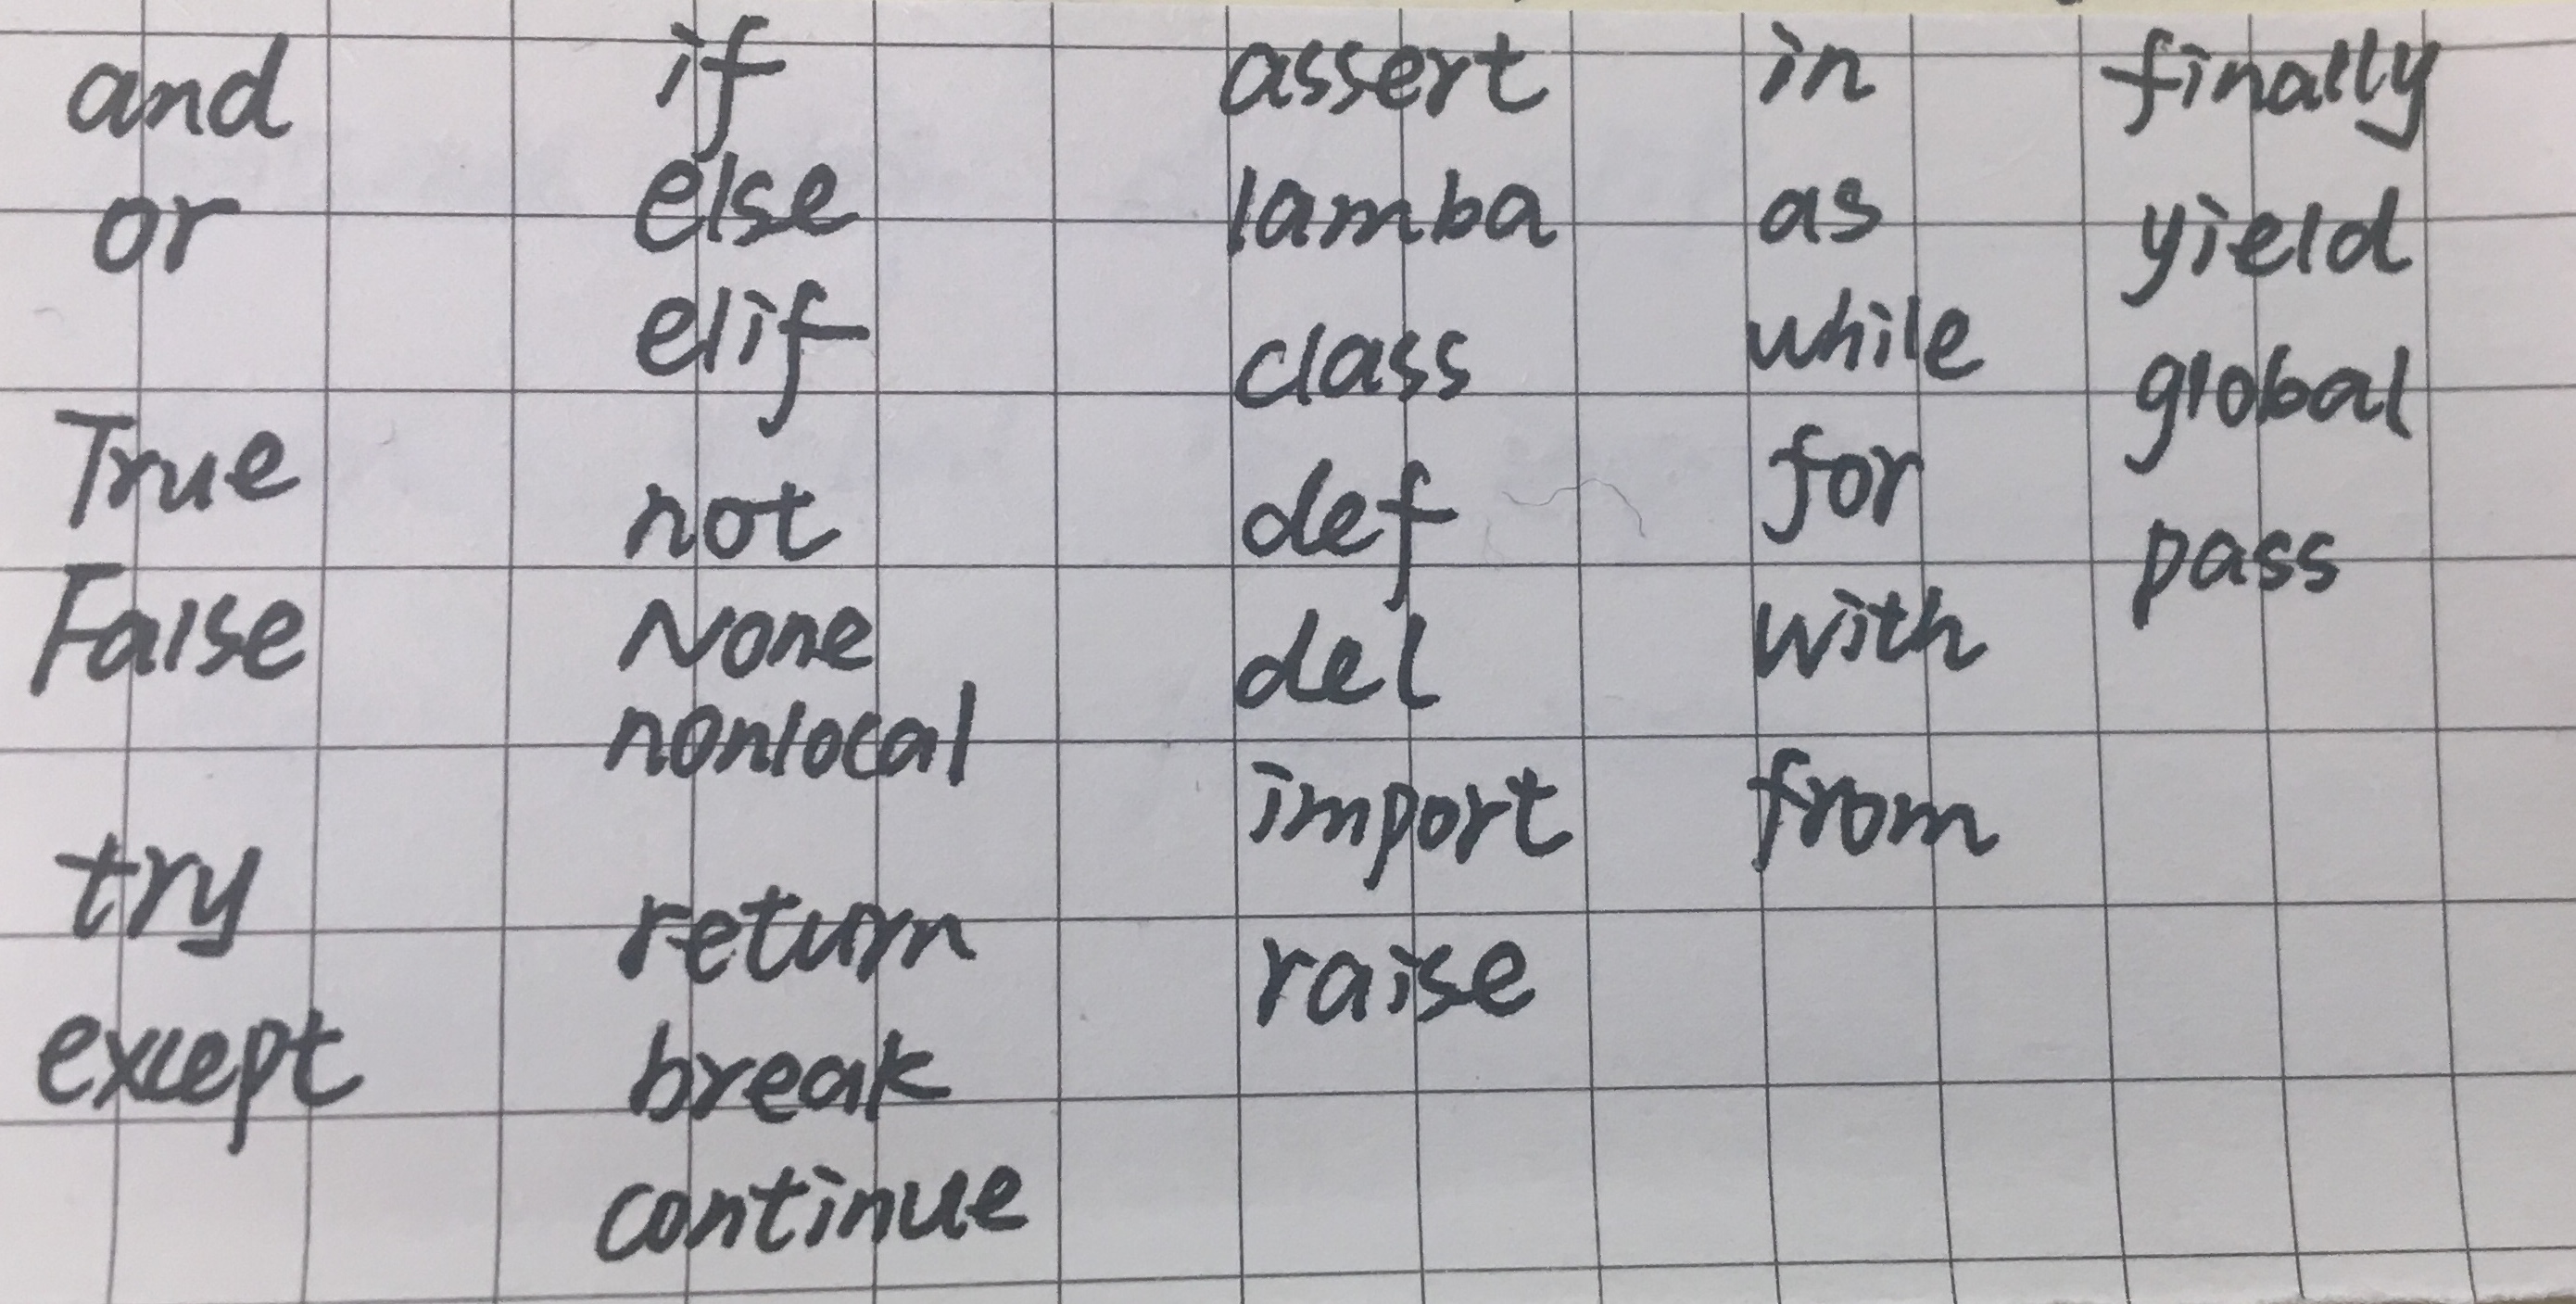 and
or
True
False
try
except
if
else
elif
not
None
nonlocal
return
break
continue
assert
lamba
class
def
del
import
raise
in
as
while
for
with
from
finally
yield
global
pass